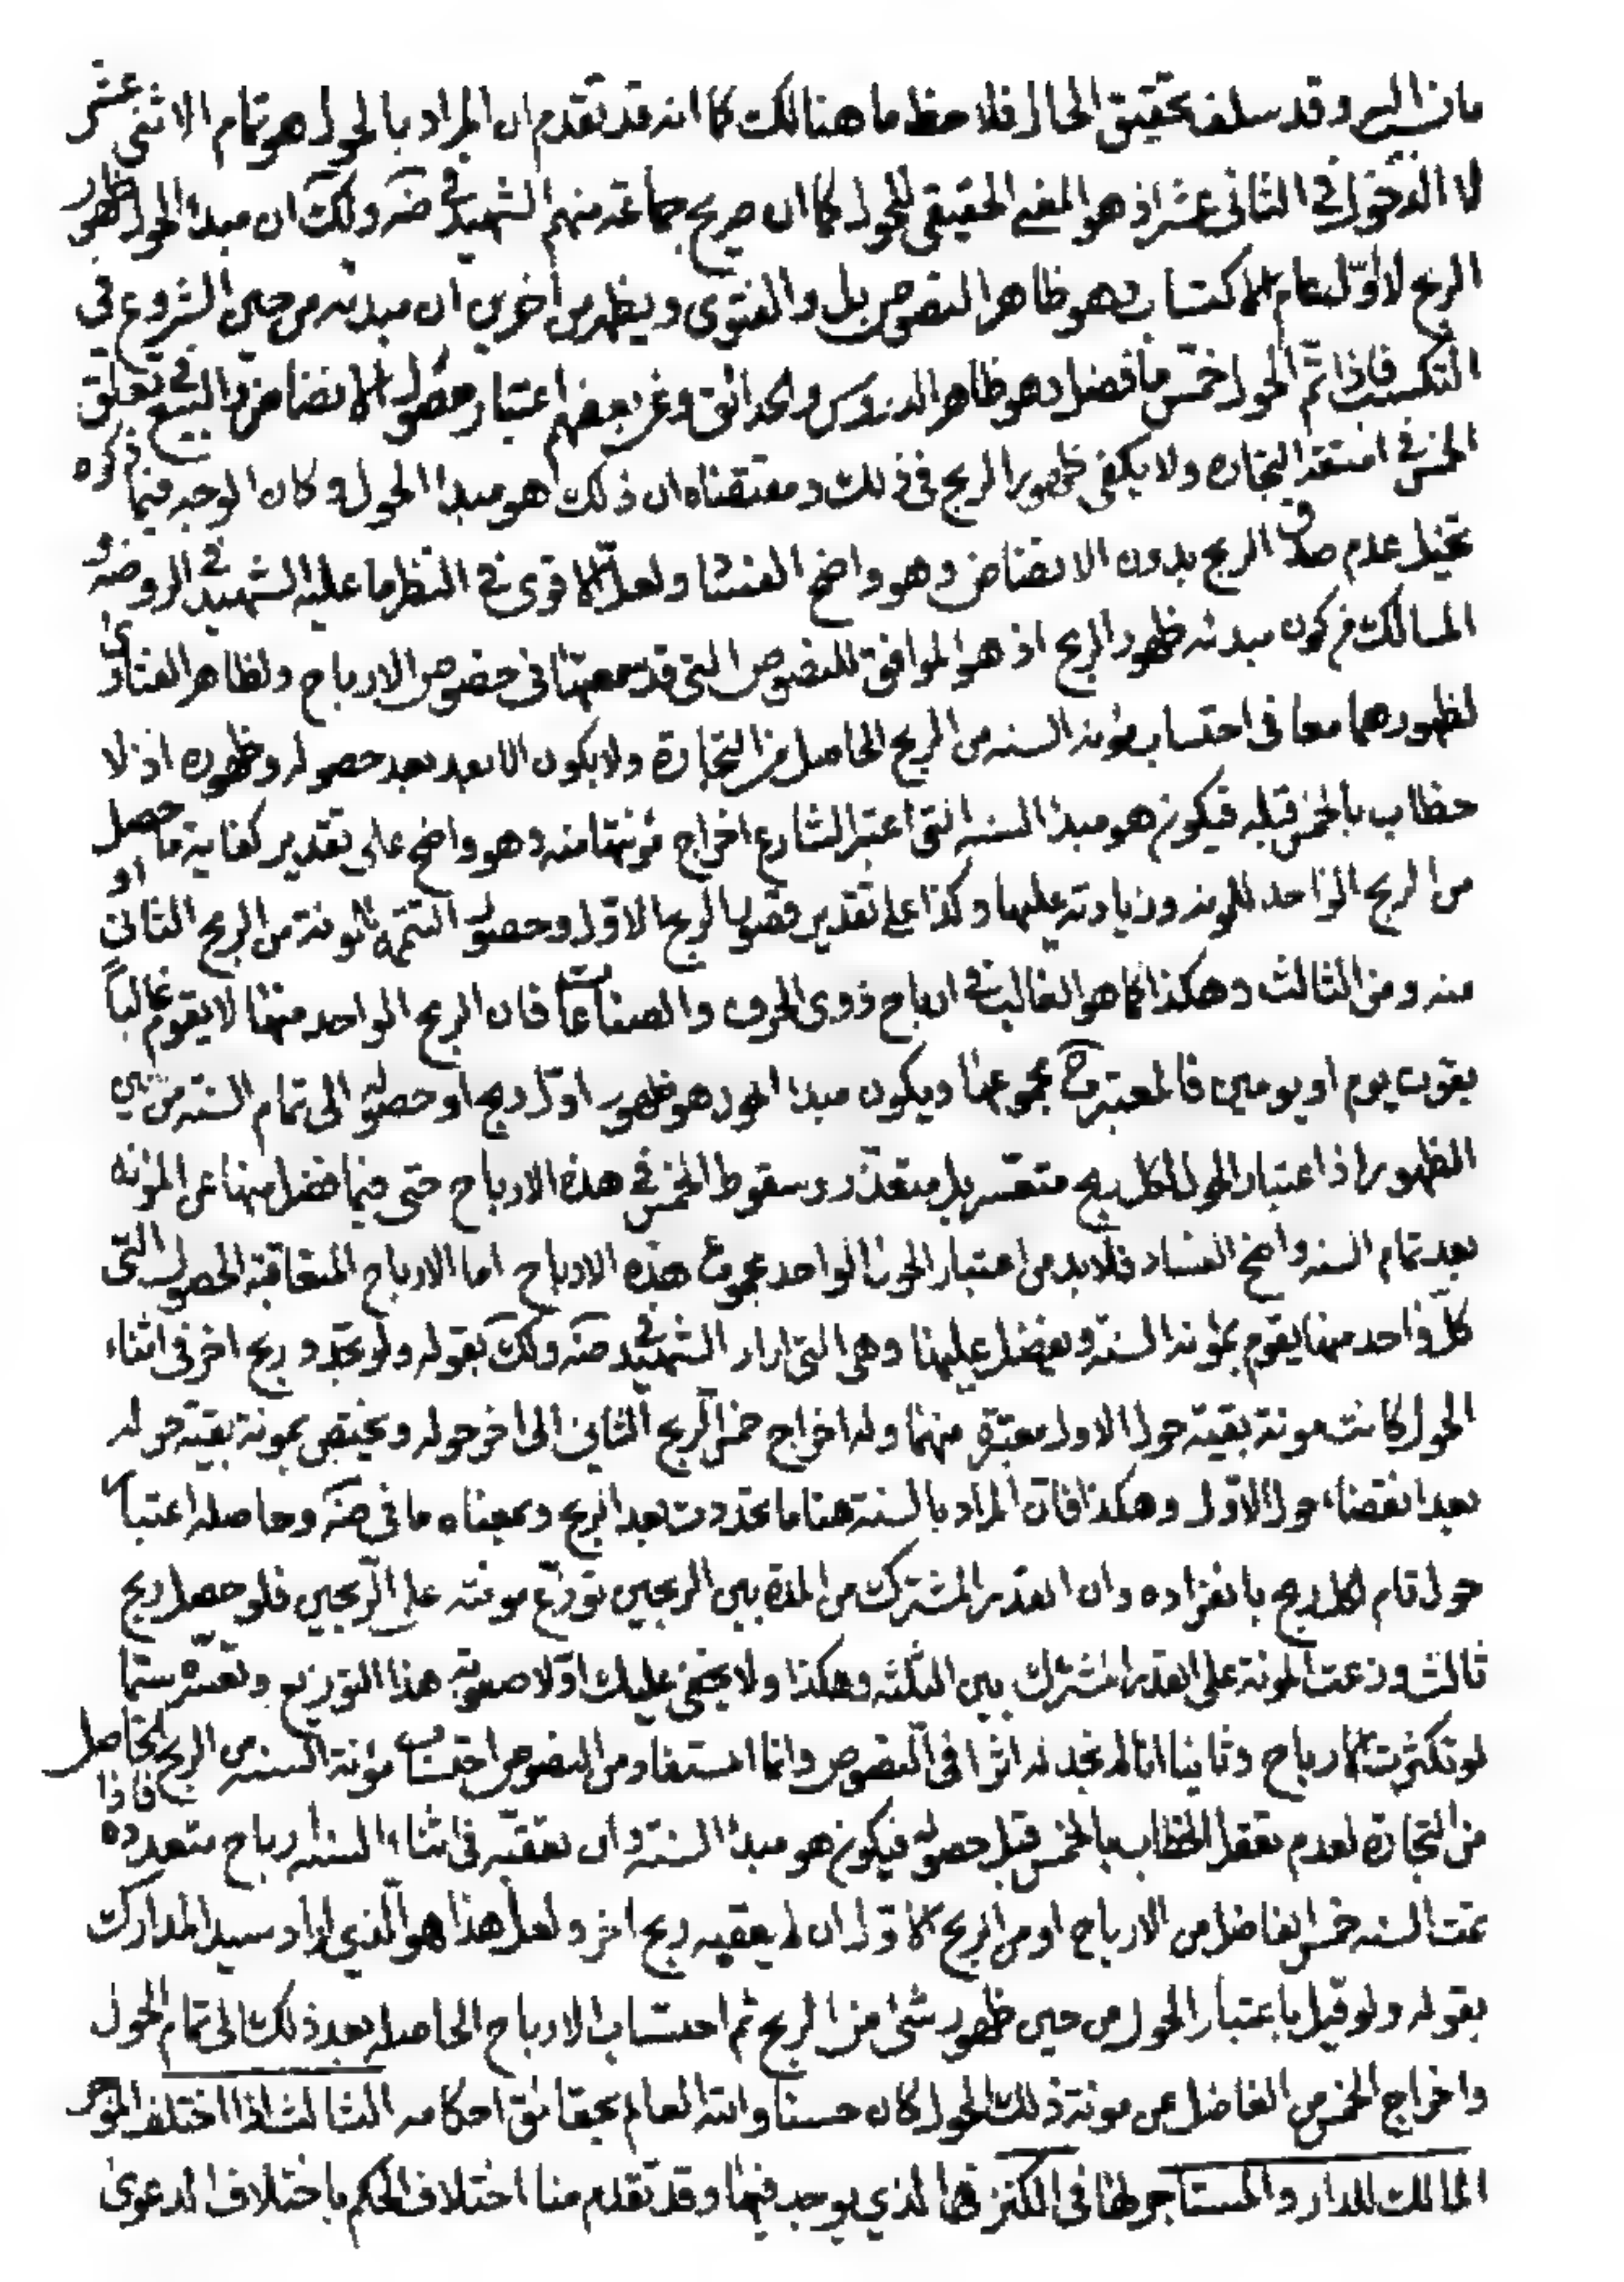 وقد سلف تحقيق الحال فلاحظ ما هنالك كما انه قد تقدم ان المراد بالحول هو تمام الاثنى عشر
لا الدخول فى الثانى عشر اذ هو المعنى الحقيقى للحول كما ان صريح جماعة منهم الشهيد فى ضه ولك ان مبدا الحول ظهور
الربح لا اول عام الاكتساب وهو ظاهر النصوص بل والفتوى ويظهر من اخرين ان مبدئه من حين الشروع فى
التكسب فاذا تم الحول خمس ما فضل وهو ظاهر الدروس والحدائق وعن بعضهم اعتبار حصول الانضاض والبيع فى تعلق
الخمس فى امتعة التجارة ولا يكفى ظهور الربح فى ذلك ومقتضاه ان ذلك هو مبدا الحول وكان الوجه فيما ذكره
تخيل عدم صدق الربح بدون الانضاض وهو واضح الفساد ولعل الاقوى فى النظر ما عليه الشهيد فى الروضه و
المسالك من كون مبدئه ظهور الربح اذ هو الموافق للنصوص التى قد سمعتها فى خصوص الارباح ولظاهر الفتاوى
لظهورهما معا فى احتساب مؤنة السنه من الربح الحاصل من التجارة ولا يكون الا بعد حصوله وظهوره اذ لا
خطاب بالخمس قبله فيكون هو مبدا السنه التى اعتبر الشارع اخراج مؤنتها منه وهو واضح على تقدير كفاية ما حصل
من الربح الواحد للمونه وزيادته عليها وكذا على تقدير قصور الربح الاول وحصول التتمه للمونة من الربح الثانى او
منه ومن الثالث وهكذا كما هو الغالب فى ارباح ذوى الحرف والصناعات فان الربح الواحد منها لا يقوم غالباً
بقوت يوم او يومين فالمعتبر ح مجموعها ويكون مبدا الحول هو ظهور اول ربح او حصوله الى تمام السنه من حين
الظهور اذ اعتبار الحول لكل ربح متعسر بل متعذر وسقوط الخمس فى هذه الارباح حتى فيما فضل منها عن المؤنه
بعد تمام السنه واضح الفساد فلابد من اعتبار الحول الواحد لمجموع هذه الارباح اما الارباح المتعاقبة الحصول التى
كل واحد منها يقوم بمؤنة السنة ويفضل عليها وهى التى اراد الشهيد فى ضه ولك بقوله ولو تجدد ربح اخر فى اثناء
الحول كانت مونة بقية حول الاول معتبرة منهما وله اخراج خمس الربح الثانى الى اخر حوله ويختص بمونة بقية حوله
بعد انقضاء حول الاول وهكذا فان المراد بالسنة هنا ما تجددت بعد الربح وبمعناه ما فى ضه وحاصله اعتبار
حول تام لكل ربح بانفراده وان القدر المشترك من المدة بين الربحين توزع مونته على الربحين فلو حصل ربح
ثالث وزعت المونة على القدر المشترك بين الثلثه وهكذا ولا يخفى عليك اولا صعوبة هذا التوزيع وتعسره سيما
لو تكثرت الارباح وثانيا انا لم نجد له اثرا فى النصوص وانما المستفاد من النصوص احتساب مؤنة السنه من الربح الحاصل
من التجارة لعدم تعقل الخطاب بالخمس قبل حصوله فيكون هو مبدا السنة وان تعقبه فى اثناء السنه ارباح متعدده فاذا
تمت السنه خمس الفاضل من الارباح او من الربح الاول ان لم يعقبه ربح اخر ولعل هذا هو الذي اراد سيد المدارك
بقوله ولو قيل باعتبار الحول من حين ظهور شئ من الربح ثم احتساب الارباح الحاصله بعد ذلك الى تمام الحول
واخراج الخمس من الفاضل عن مونة ذلك الحول كان حسنا والله العالم بحقائق احكامه الثالث اذا اختلف الموجر
المالك للدار والمستاجر لها فى الكنز الذي يوجد فيها وقد تقدم منا اختلاف الحكم باختلاف الدعوى